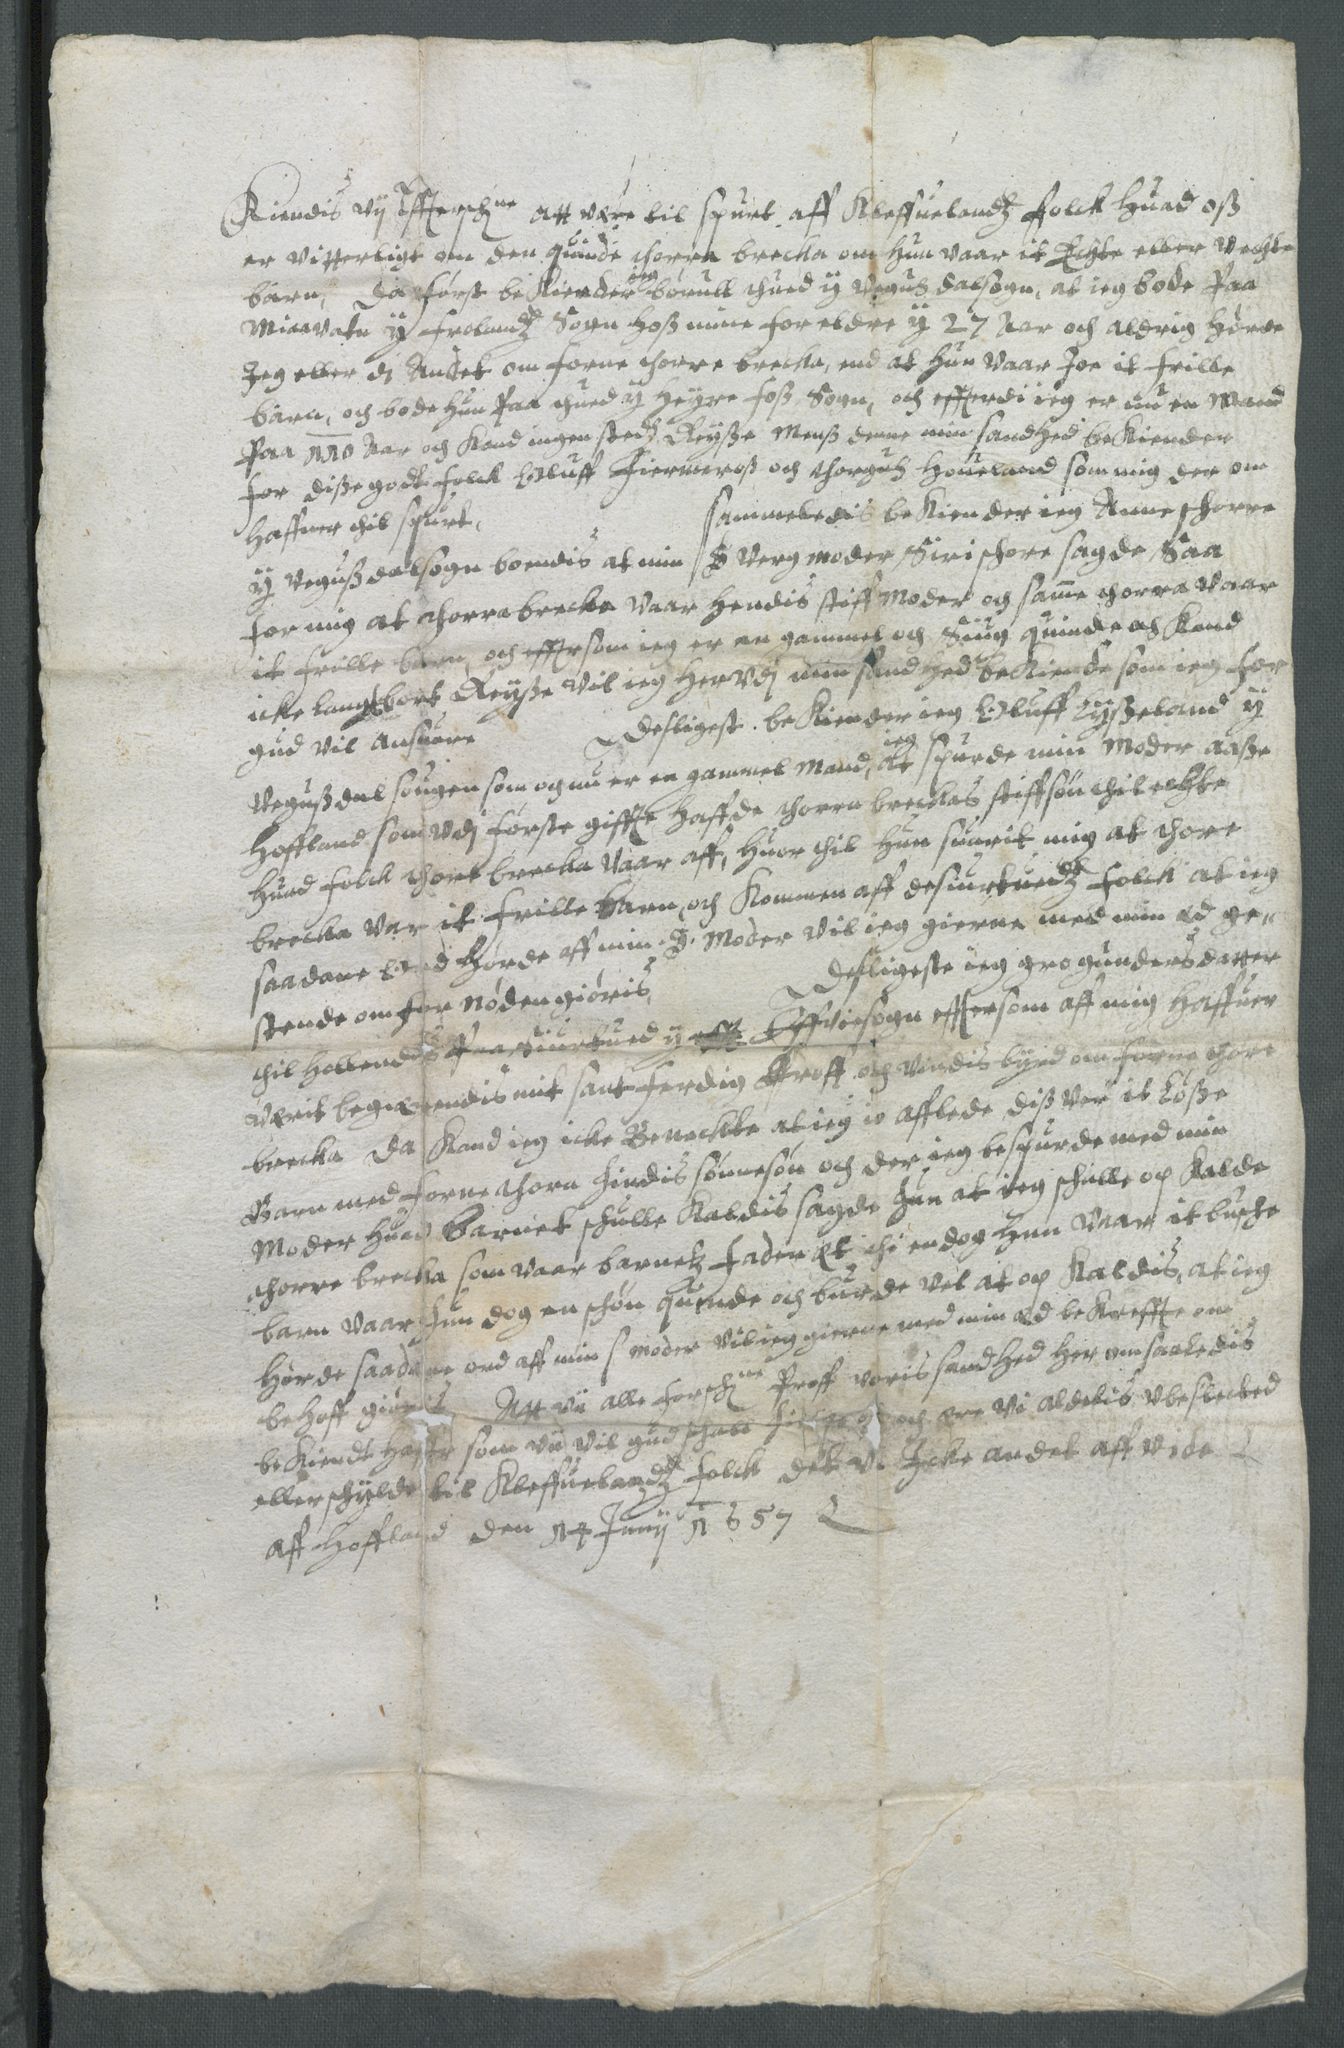 Kiendis vij effterschne att være til spurt aff Kleffuelandz folck huad oß
er vitterligt om den quinde thorra brecka om hun vaar it Echte eller vechte
barn, da först be Kiender ieg börull thued y veguß dalsogn, at ieg bode paa
Miaavatn y frolandz Sogn hoß mine for eldre y 27 Aar och aldrig hörde
Jeg eller di Andet om forne thorre brecka, end at hun vaar Joe it frille
barn, och bode hun paa thued y heyre foß Sogn, och effterdi ieg er nu en Mand
paa 110 Aar och Kand ingen stedz Reyße Menß denne min sandhed be Kiender
for diße godt folck Oluff Fiermeroß och thorguß houeland som mig der om
haffuer thil spurt, Sammeledis be Kiender ieg Anne schorre
y veguß dalsogn boendis at min S verg moder Siri schore sagde Saa
for mig at thorra brecka vaar hendis stiff Moder och samme thorra vaar
it frille barn, och effter som ieg er en gammel och Siug quinde och Kand
icke langt bort Reyße vil ieg her vdj min sandhed be Kiende som ieg for
gud vil ansuare Desligest. be Kiender ieg Oluff Lyßeland y
veguß dal songen som och nu er en gammel Mand, at ieg spurde min Moder aaße
hoffland som vdj förste gifft haffde thorra breckas stiffsön thil echte
huad folck thore brecka vaar aff, huor thil hun suarit mig at thore
brecka var it frille barn, och Kommen aff desiurtuedz folck at ieg
saadane Ord hörde aff min S. Moder vil ieg gierne med min Ed ge„
stende om for nöden giöris, Desligeste ieg gro gunders datter
thil hollendis paa Siurtued y Effuiesogn effter som aff mig haffuer
verit begierendis mit sant ferdig Proff och vindis byrd om forne thore
brecka da Kand ieg icke Benechte at ieg io afflede diß ver it Löße
Barn med forne thora hindis sönnesön och der ieg bespurde med min
Moder huad barnet schulle Kaldis sagde hun at ieg schulle op Kalde
thorre brecka som vaar barnetz fader Et thi endog hun vaar it busche
barn vaar hun dog en schön quinde och burde vel at op Kaldis, at ieg
hörde saadane ord aff min S moder vil ieg gierne med min Ed be Kreffte om
behoff giöris Att vii alle forschne Proff voris sandhed her om saaledis
be Kiendt haffr som vii vil gud schall och ere vi aldelis vbeslected
eller schylde til Kleffuelandz folck det vi Icke andet aff vide
aff hoffland den 14 Junij 1657